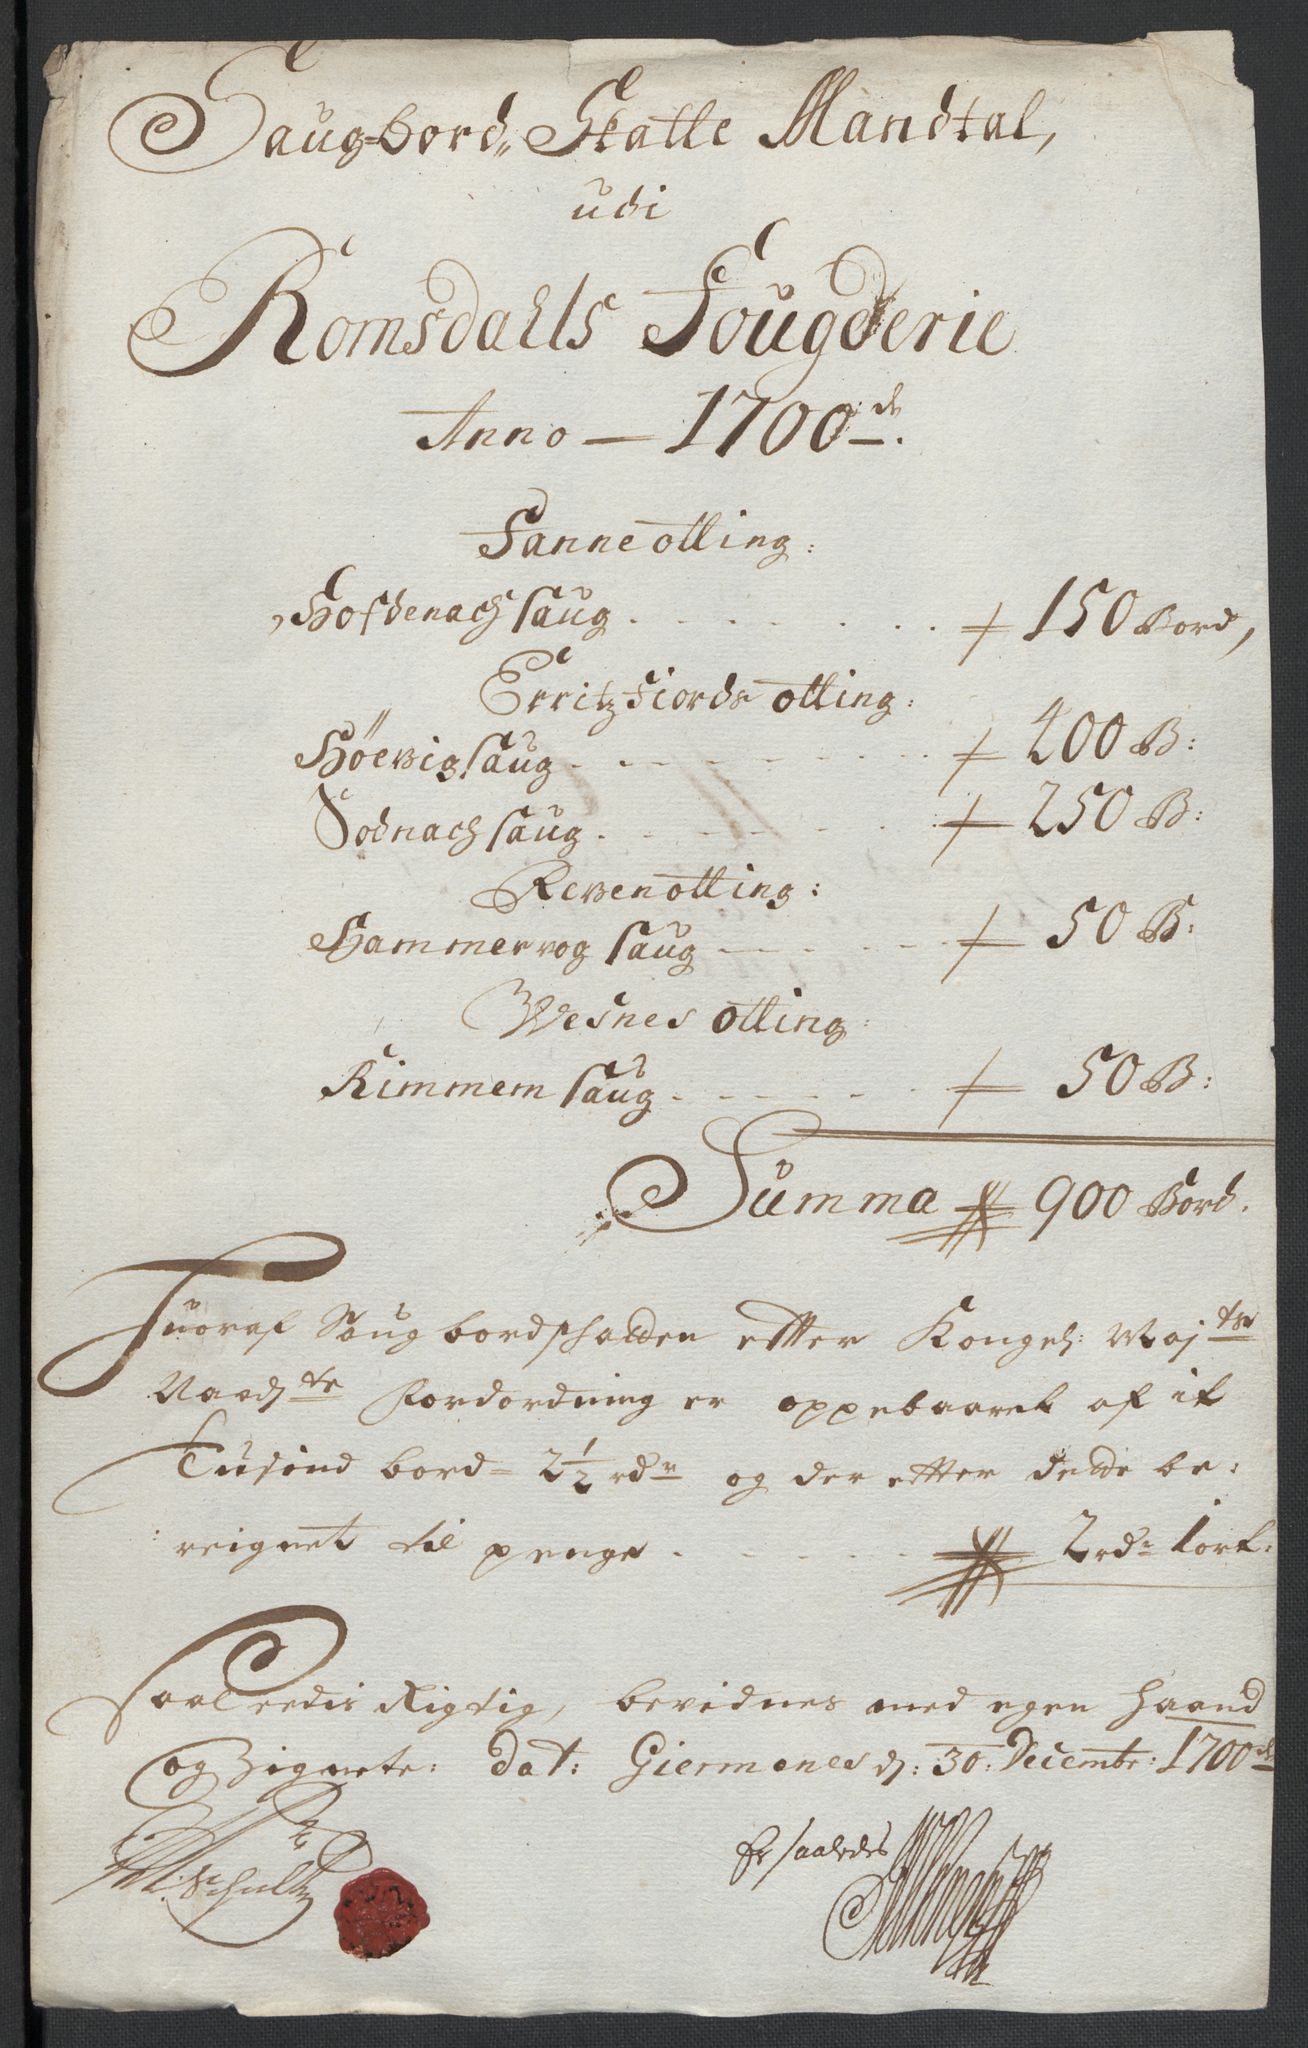 Saug-bord„ Skatte Mandtal,
udi
Romsdahls Fougderie
Anno — 1700 de.
Fanne otting:
Hofdenach saug . . . . . . . 150 Bord,
Erritzfiords otting:
Höevig saug . . . . . . . 400 B:
Sodnach saug . . . . . . . 250 B:
Reven otting:
Hammervog saug . . . . . 50 B:
Wesnes otting:
Rimmem saug . . . . . 50 B:
Summa 900 Bord.
Huoraf Saugbordschatten efter Kongel: Maj:ts
Naad:te Forordning er oppebaaret af it
Tusind bord = 2½ rdr og der efter dette be:
reignet til penge . . . . . 2 rdr 1 ort:
Saaleedis Rigtig, bevidnes med egen haand
og Zignete: dat: Giermones d: 30: Decembr: 1700 de
Schultz
Er saaledes